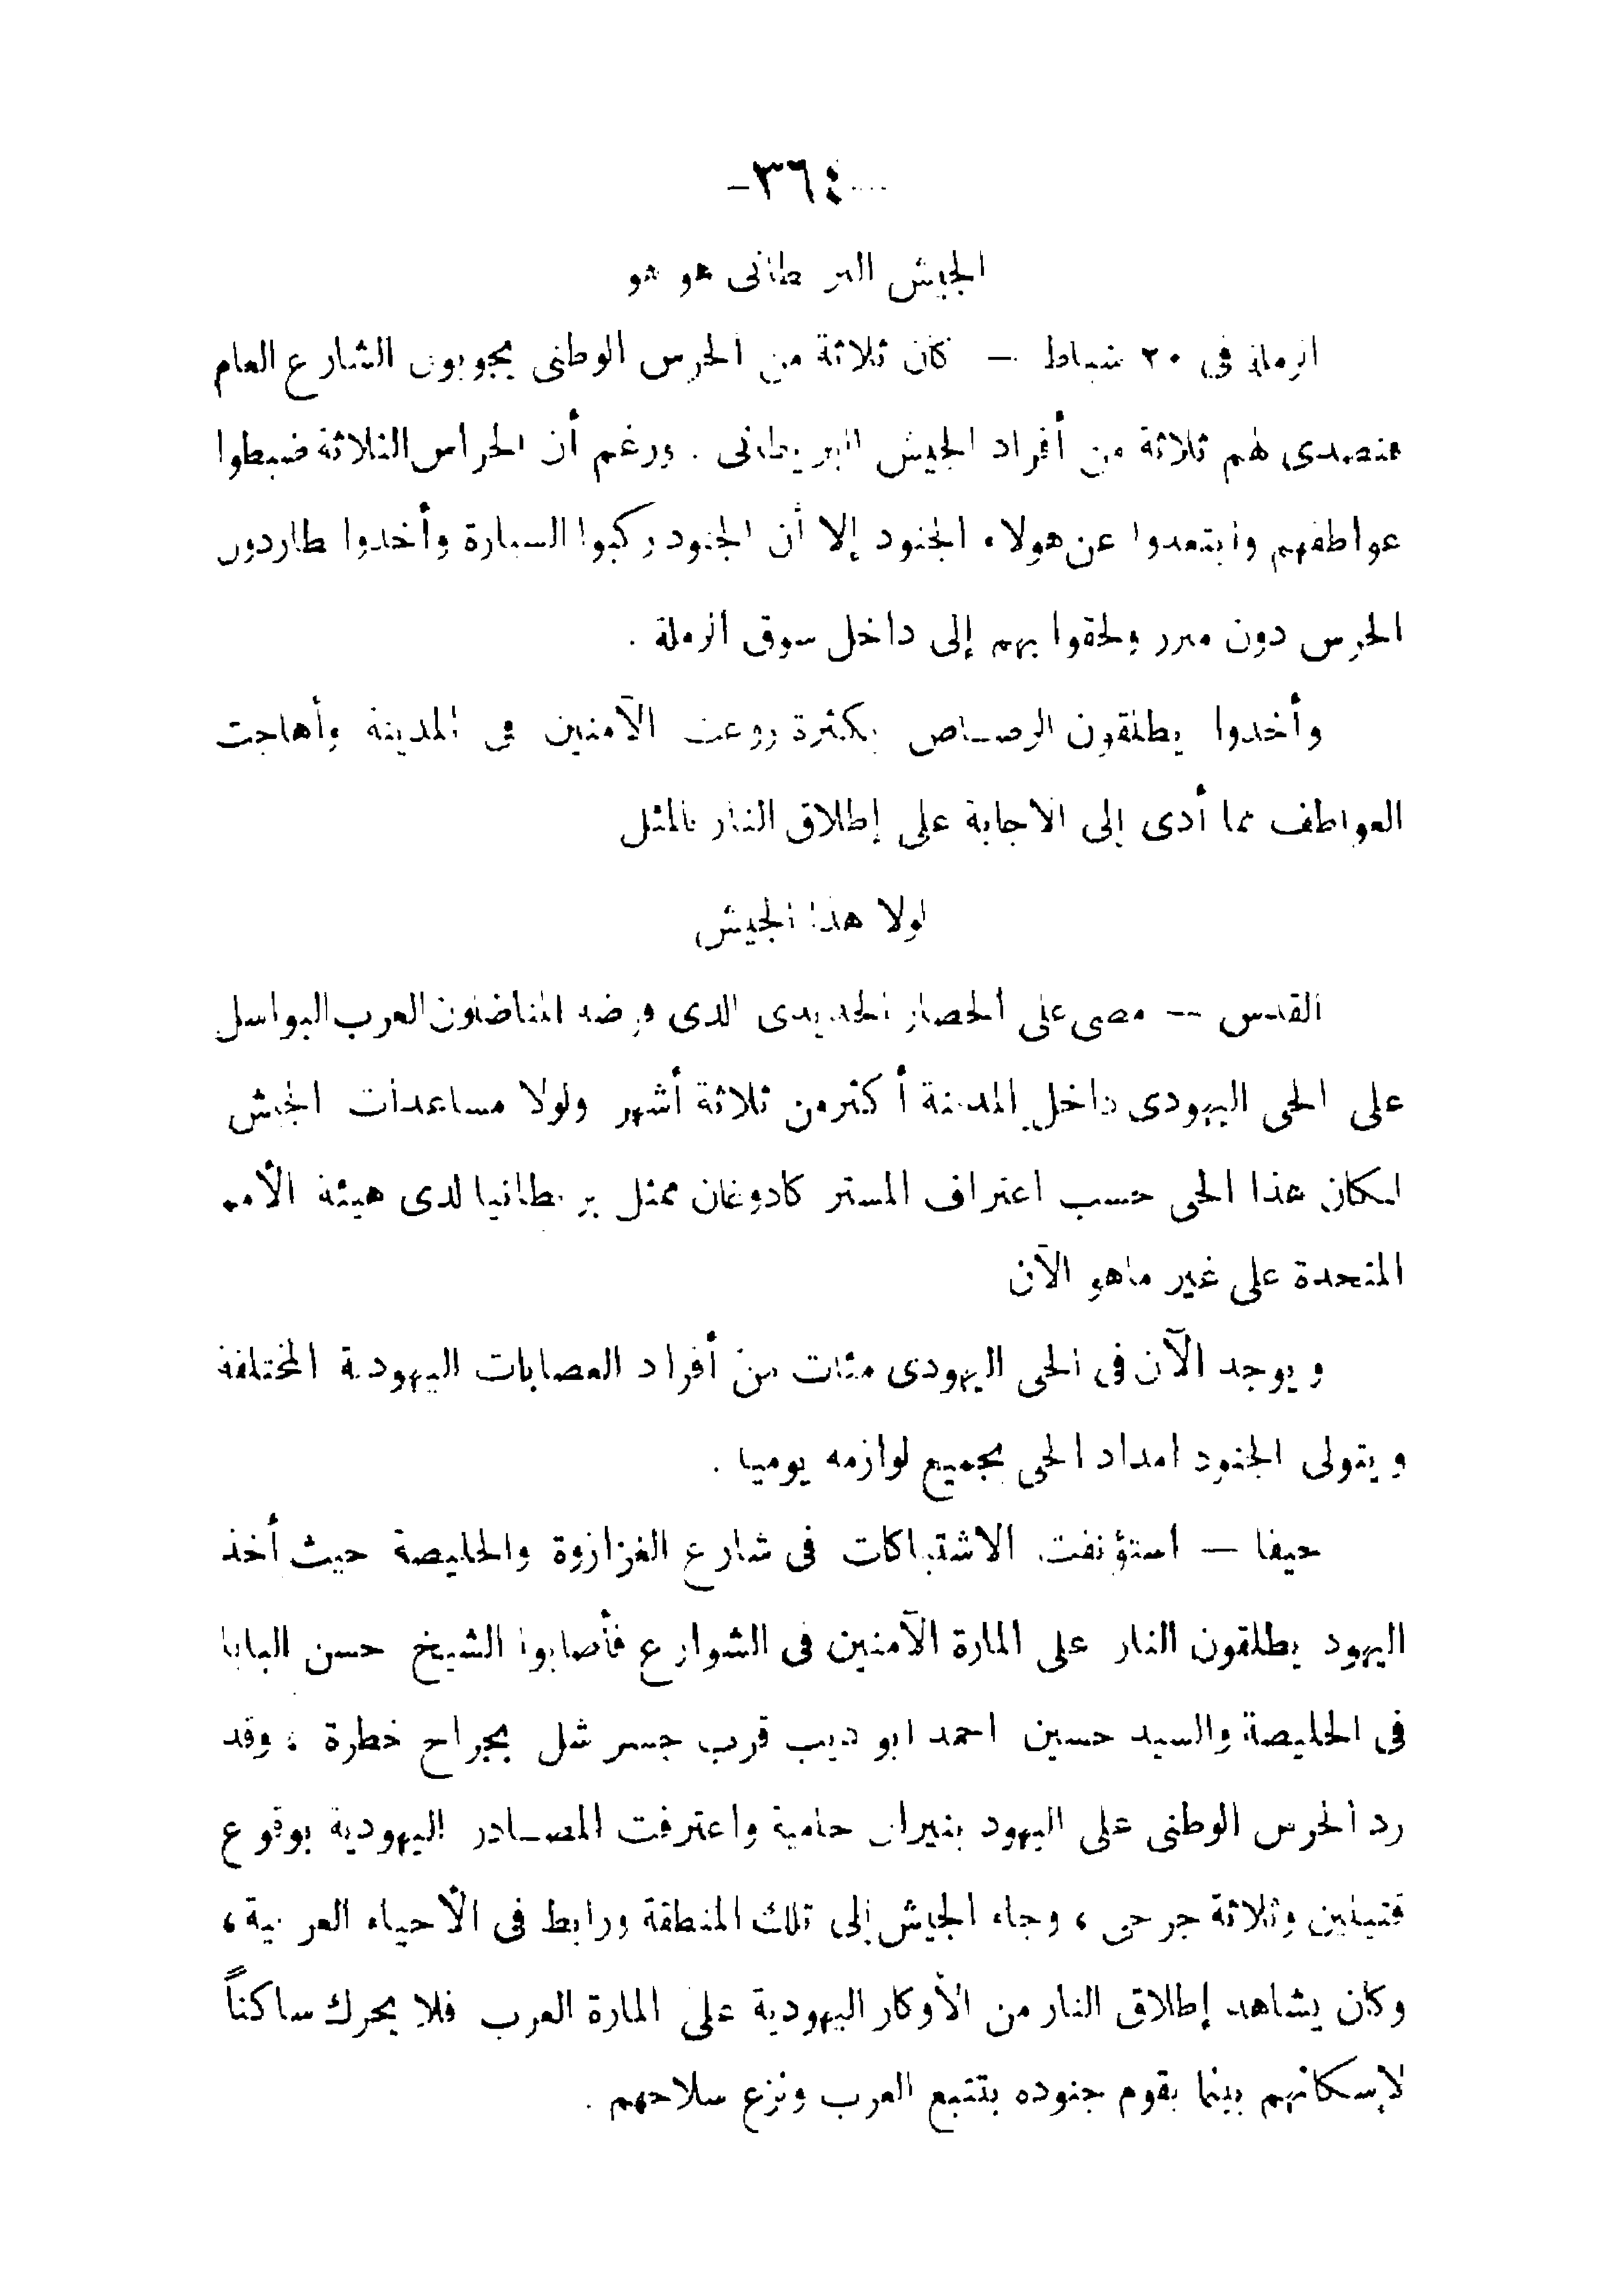 -٣٦٤-
الجيش البريطانى هو هو
الرملة فى ٢٠ شباط — كان ثلاثة من الحرس الوطنى يجوبون الشارع العام
فتصدى لهم ثلاثة من أفراد الجيش البريطانى . ورغم أن الحراس الثلاثة ضبطوا
عواطفهم وابتعدوا عن هولاء الجنود إلا أن الجنود ركبوا السيارة وأخدوا طاردون
الحرس دون مبرر ولحقوا بهم إلى داخل سوق الرملة .
وأخدوا يطلقون الرصاص بكثرة روعت الآمنين فى المدينة وأهاجت
العواطف مما أدى إلى الاجابة على إطلاق النار بالمثل
لولا هذا الجيش
القدس -- مضى على الحصار الحديدى الدى فرضه المناضلون العرب البواسل
على الحى اليهودى داخل المدينة أكثر من ثلاثة أشهر ولولا مساعدات الجيش
لكان هذا الحى حسب اعتراف المستر كادوغان ممثل بريطانيا لدى هيئة الأمم
المتحدة على غير ماهو الآن
ويوجد الآن فى الحى اليهودى مئات من أفراد العصابات اليهودية المختلفة
ويتولى الجنود امداد الحى بجميع لوازمه يوميا .
حيفا — استؤنفت الاشتباكات فى شارع الغزازوة والحليصة حيث أخذ
اليهود يطلقون النار على المارة الآمنين فى الشوارع فأصابوا الشيخ حسن البابا
فى الحليصة والسيد حسين احمد ابو ديب قرب جسر شل بجراح خطرة ، وقد
رد الحرس الوطنى على اليهود بنيران حامية واعترفت المصادر اليهودية بوقوع
قتيلين وثلاثة جرحى ، وجاء الجيش إلى تلك المنطقة ورابط فى الأحياء العربية ،
وكان يشاهد إطلاق النار من الأوكار اليهودية على المارة العرب فلا يحرك ساكناً
لإسكاتهم بينما يقوم جنوده بتتبع العرب ونزع سلاحهم .